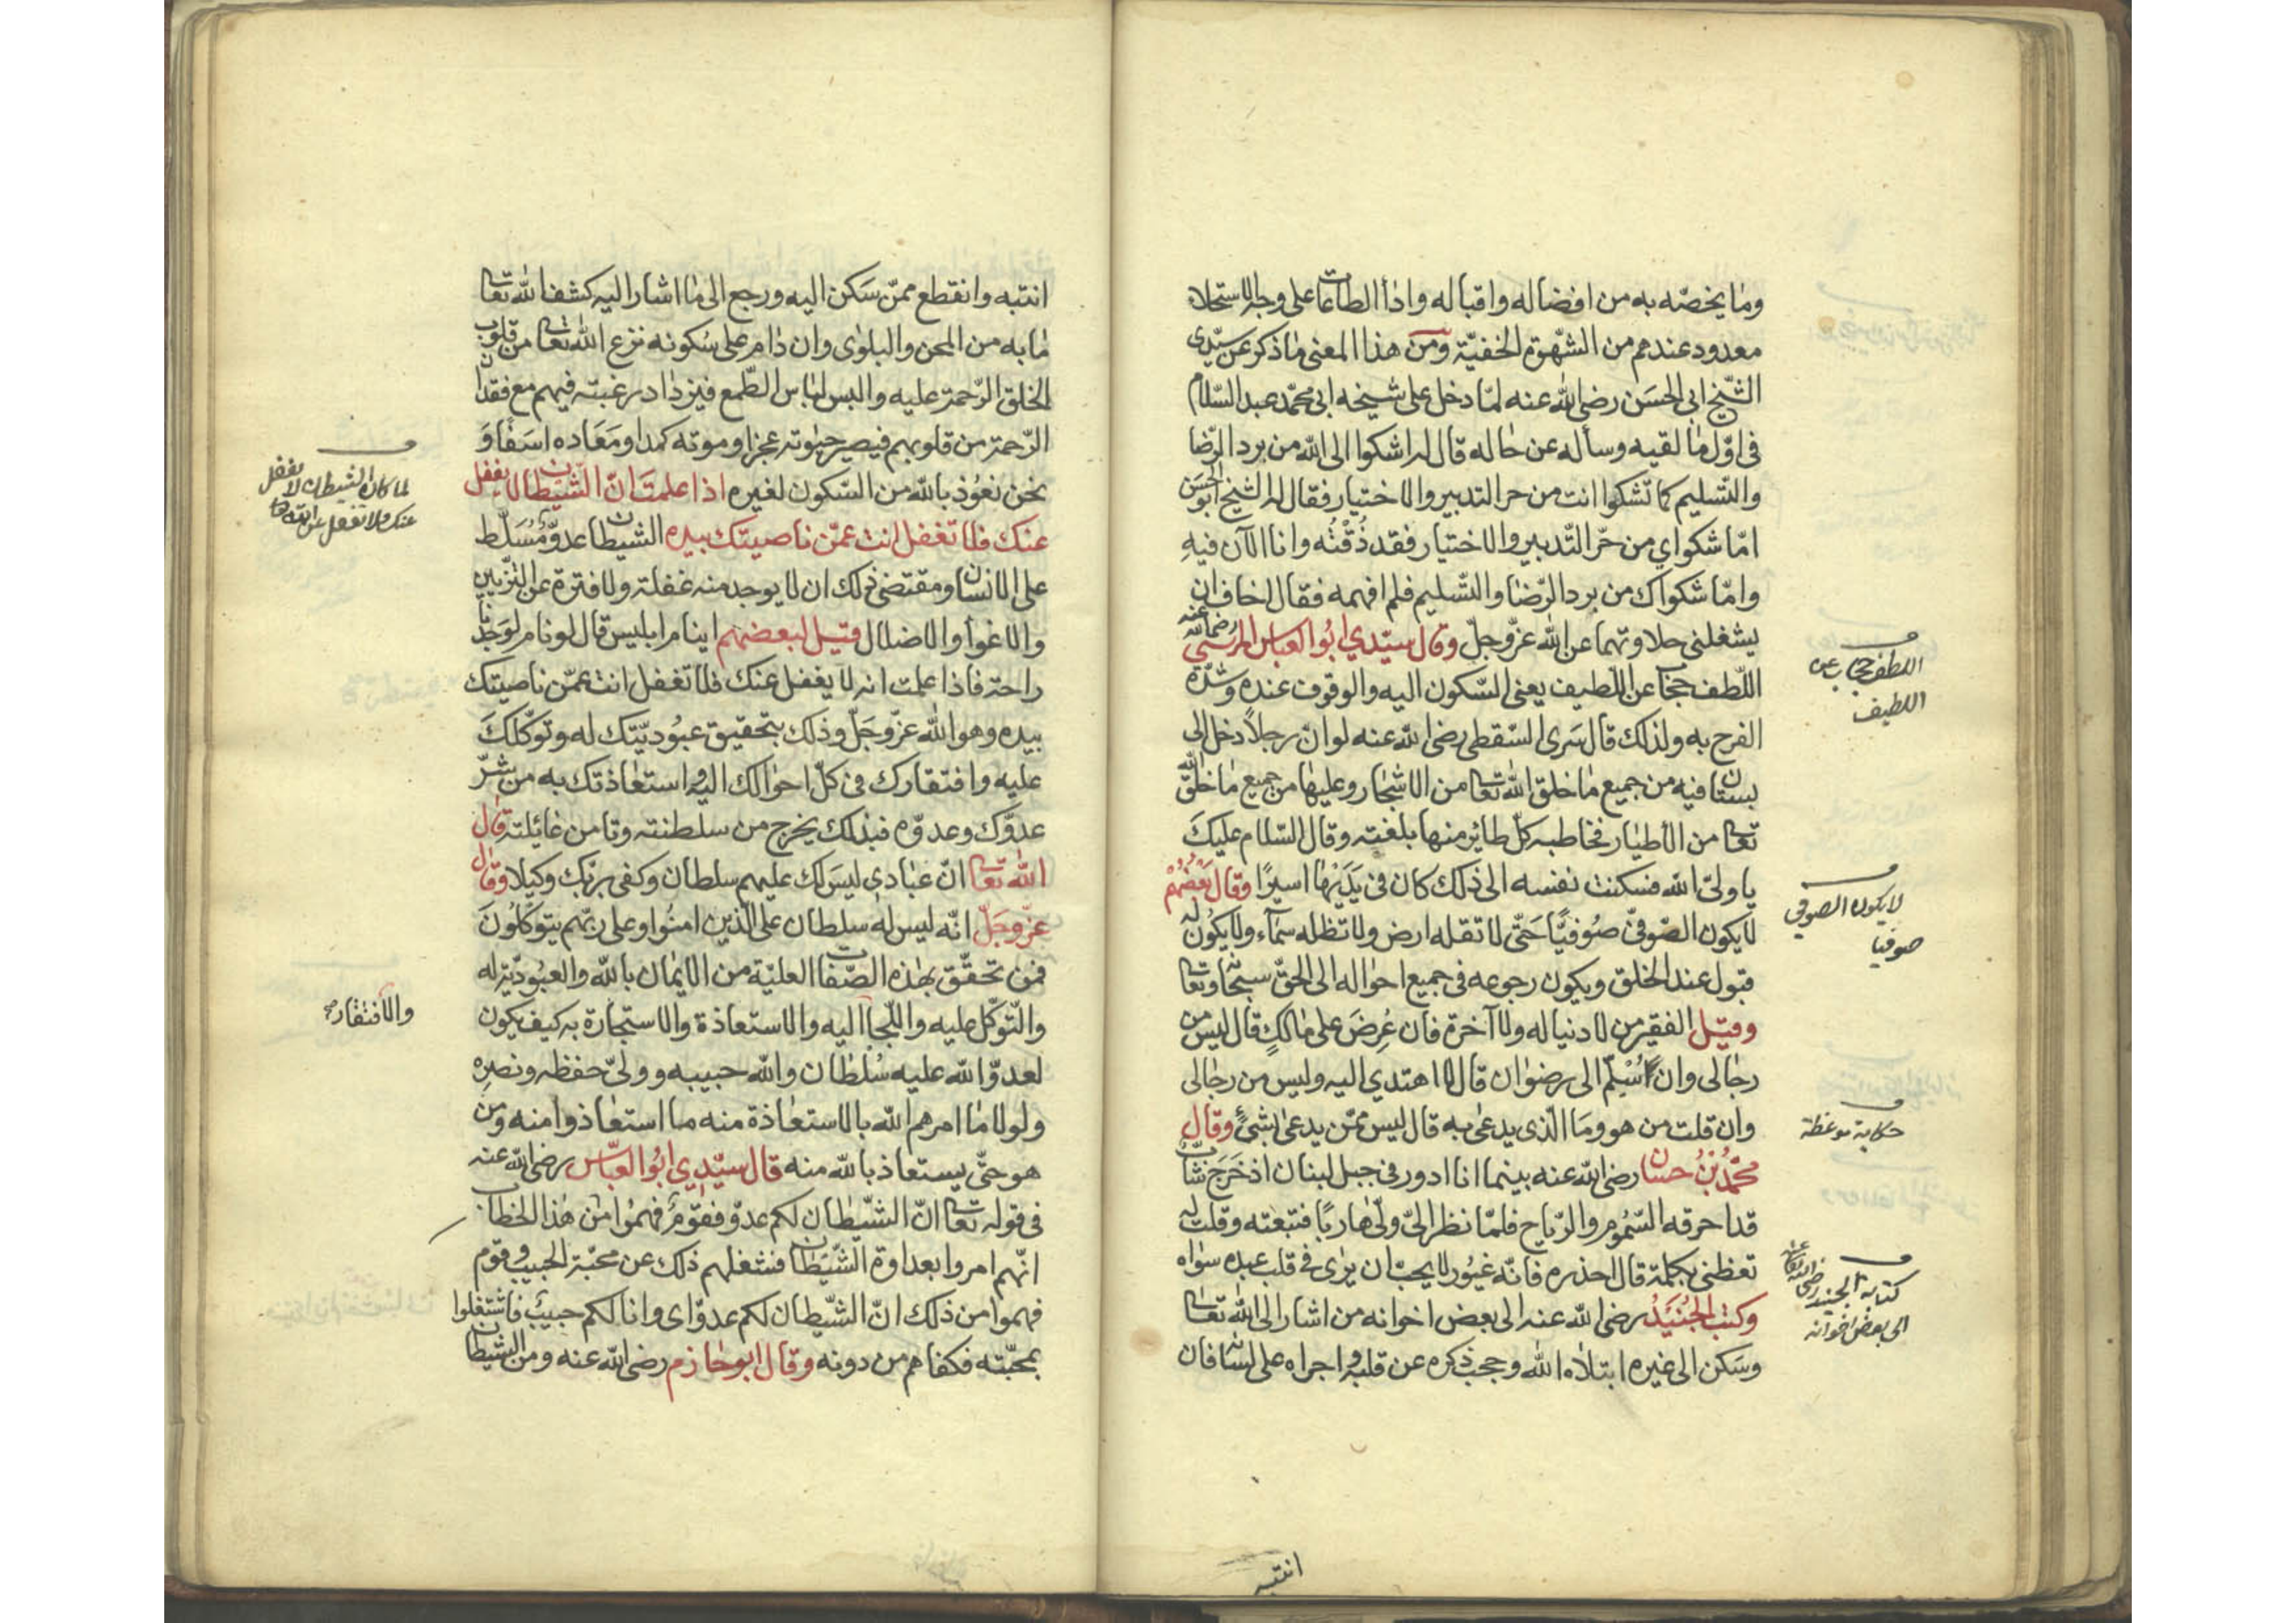 وما يخصّه به من افضاله واقباله واذا الطاعات على وجه الاستحلاء
معدود عندهم من الشهوة الخفيّة ومن هذا المعنى ما ذكر عن سيّدى
الشيخ ابى الحسَن رضى الله عنه لمّا دخل على شيخه ابى محمّد عبد السّلام
فى اوّل ما لقيه وسأله عن حاله قال له اشكوا الى الله من برد الرّضا
والتّسليم كما تشكوا انت من حر التدبير والاختيار فقال له الشيخ ابو الحسَن
امّا شكواي من حّر التّدبير والاختيار فقد ذُقْتُه وانا الآن فيهِ
وامّا شكواك من برد الرّضا والتسليم فلم افهمه فقال اخاف ان
يشغلنى حلاوتهما عن الله عزّ وجلّ وقال سيّدي ابُو العباس المرسى رضى الله عنه
اللّطف حجاب عن اللّطيف يعنى السّكون اليه والوقوف عنده وشدّة
الفرح به ولذلك قال سَرى السّقطى رضى الله عنه لو انّ رجلاً دخل الى
بستان فيه من جميع ما خلق الله تعالى من الاشجار وعليها من جميع ما خلق الله
تعالى من الأطيار فخاطبه كلّ طائر منها بلغته وقال السّلام عليكَ
يا ولىّ الله فسكنت نفسه الى ذلك كان فى يَدَيْهَا اسيرًا وقال بَعْضُهُمْ
لا يكون الصّوفىّ صُوفيًّا حَتّى لا تقله ارض ولا تظله سمآء ولا يكوُن له
قبول عند الخلق ويكون رجوعه فى جميع احواله الى الحقّ سبحانه وتعالى
وقيل الفقير من لا دنيا له ولا آخرة فان عُرِضَ على مالكٍ قال ليس من
رجالى وان اُسْلِمَ الى رضوان قال لا اهتدي اليه وليس من رجالى
وان قلت من هو ومَا الّذى يدعى به قال ليس ممّن يدعى بشئٍ وقال
محمّدُ بْنُ حسان رضى الله عنه بينما انا ادور فى جبل لبنان اذ خَرَج شاب
قد احرقه السّمُوم والرّياح فلمّا نظر الىّ ولّى هاربًا فتبعته وقلت له
تعظنى بكلمة قال احذره فانّه غيُور لا يحبّ ان يرٰى فى قلب عبده سواه
وكتب الجُنَيَدُ رضى الله عنه الى بعض اخوانه من اشار الى الله تعالى
وسَكن الى غيره ابتلاه الله وحجب ذكره عن قلبه واجراه على لسانه فان
اللطف حجاب عن
اللطيف
لا يكون الصوفي
صوفيا
حكاية موعظة
كتابة الجنيد رضى الله تعالى عنه
الى بعض اخوانه
انتبه
انتبه وانقطع ممّن سَكن اليه ورجع الى ما اشار اليه كشف الله تعالى
ما به من المحن والبلوٰى وان دام على سُكونه نزع الله تعالى من قلوب
الخلق الرّحمة عليه والبس لباس الطّمع فيزداد رغبته فيهم مع فقدان
الرّحمة من قلوبهم فيصير حيٰوته عجزا وموته كمدا ومَعَاده اسَفًا وَ
نحن نعوُذ بالله من السّكون لغيره اذا علمتَ انّ الشّيطان لا يغفل
عنك فلا تغفل انت عمّن ناصيتك بيده الشيطان عدوّ مُسَلّط
على الانسان ومقتضى ذلك ان لا يوجد منه غفلة ولا فترة عن التزيين
والاغوا والاضلال قيل لبعضهم اينام ابليس قال لو نام لوَجدنا
راحة فاذا علمت انه لا يغفل عنك فلا تغفل انت عمّن ناصيتك
بيده وهو الله عزّ وجَلّ وذلك بتحقيق عبُوديّتك له وتوكّلكَ
عليه وافتقارك فى كلّ احوالك اليه واستعاذتك به من شرّ
عدوّك وعدوّه فبذلك يخرج من سلطنته وتامن غائلته قال
الله تعالى انّ عبادي ليسَ لك عليهم سلطان وكفى بربّك وكيلا وقال
عزّ وجَلّ انّه ليس لهُ سلطان على الّذين امنُوا وعلى ربّهم يتوكّلُونَ
فمن تحقّق بهٰذه الصّفات العليّة من الايمان بالله والعبُوديّة له
والتّوكّل عليه واللّجا اليه والاستعاذة والاستجارة به كيف يكون
لعدوّ الله عليه سُلْطان والله حبيبه وولىّ حفظه ونصرِه
ولولا ما امرهم الله بالاستعاذة منه ما استعاذوا منه ومن
هو حتّى يستعاذ بالله منه قال سيّدي ابُو العبّاس رضى الله عنه
فى قوله تعالى انّ الشّيطان لكم عدوّ فقومٌ فهمُوا من هٰذا الخطاب
انّهم امروا بعداوة الشّيَطان فشغلهم ذلك عن محبّة الحبيب وقوم
فهموا من ذلك انّ الشّيطان لكم عدوّ اى وانا لكم حبيبٌ فاشتغلوا
بمحبّته فكفاهم من دونه وقال ابو حازم رضى الله عنه ومن الشيطان
لما كان الشيطان لا يغفل
عنك فلا تغفل عن الله
والافتقار